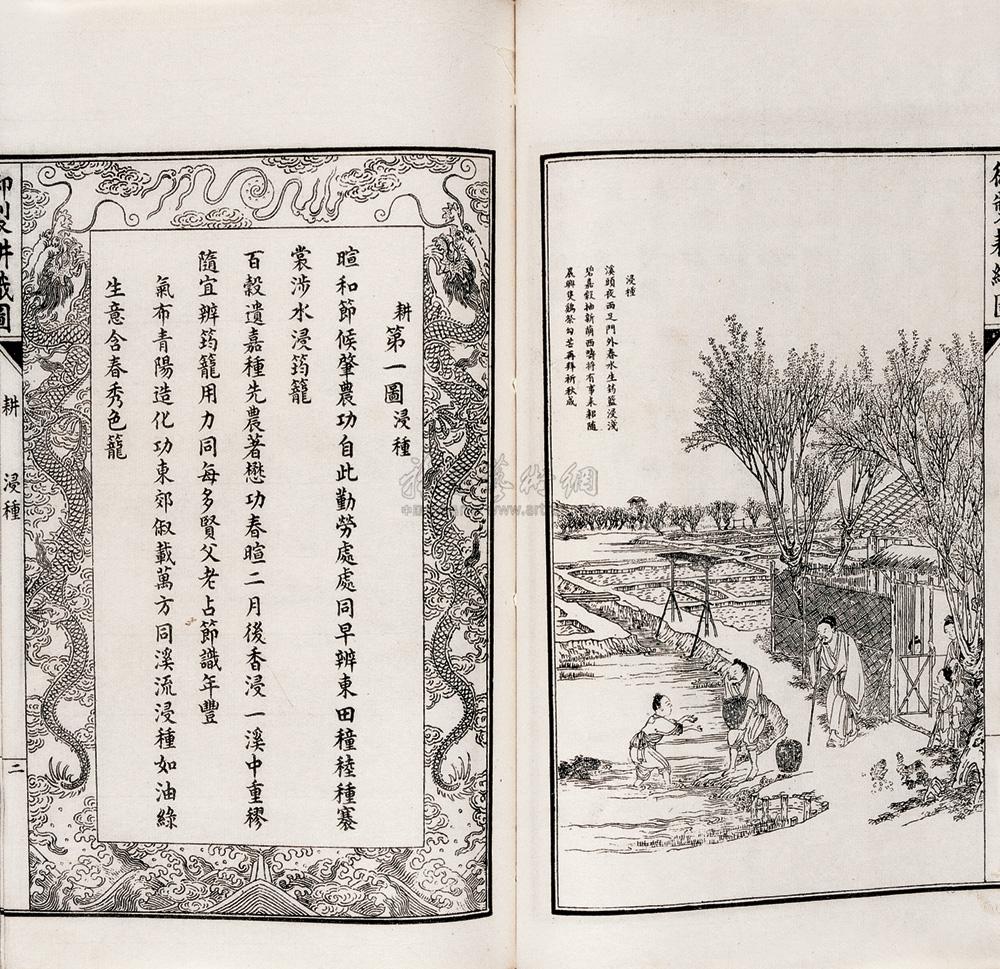 浸種
溪頭夜雨足門外春水生筠籃浸淺
碧嘉穀抽新萌西疇將有事耒耜隨
晨興隻鷄祭句芒再拜祈秋成
耕第一圖浸種
暄和節候肇農功自此勤勞處處同早辨東田穜稑種褰
裳涉水浸筠籠
百穀遺嘉種先農著懋功春暄二月後香浸一溪中重穋
隨宜辨筠籠用力同每多賢父老占節識年豐
氣布青陽造化功東郊俶載萬方同溪流浸種如油綠
生意含春秀色籠
御製耕織圖
耕
浸種
二
藝術網